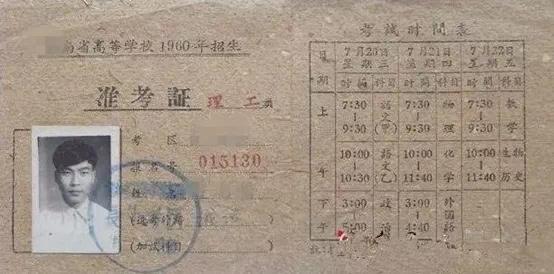 南省高等学校1960年招生
准考証 理工类
考区
报名号 015130
姓名
(选考外语)
(加試科目)
考試时間表
日期 7月20日星期三 7月21日星期四 7月22日星期五
时間 科目 时間 科目 时間 科目
上午 7:30 9:30 語文(甲) 7:30 9:30 物理 7:30 9:30 数学
10:00 10:30 語文(乙) 10:00 11:40 化学 10:00 11:40 生物 历史
下午 3:00 5:00 政 3:00 4:40 外国語